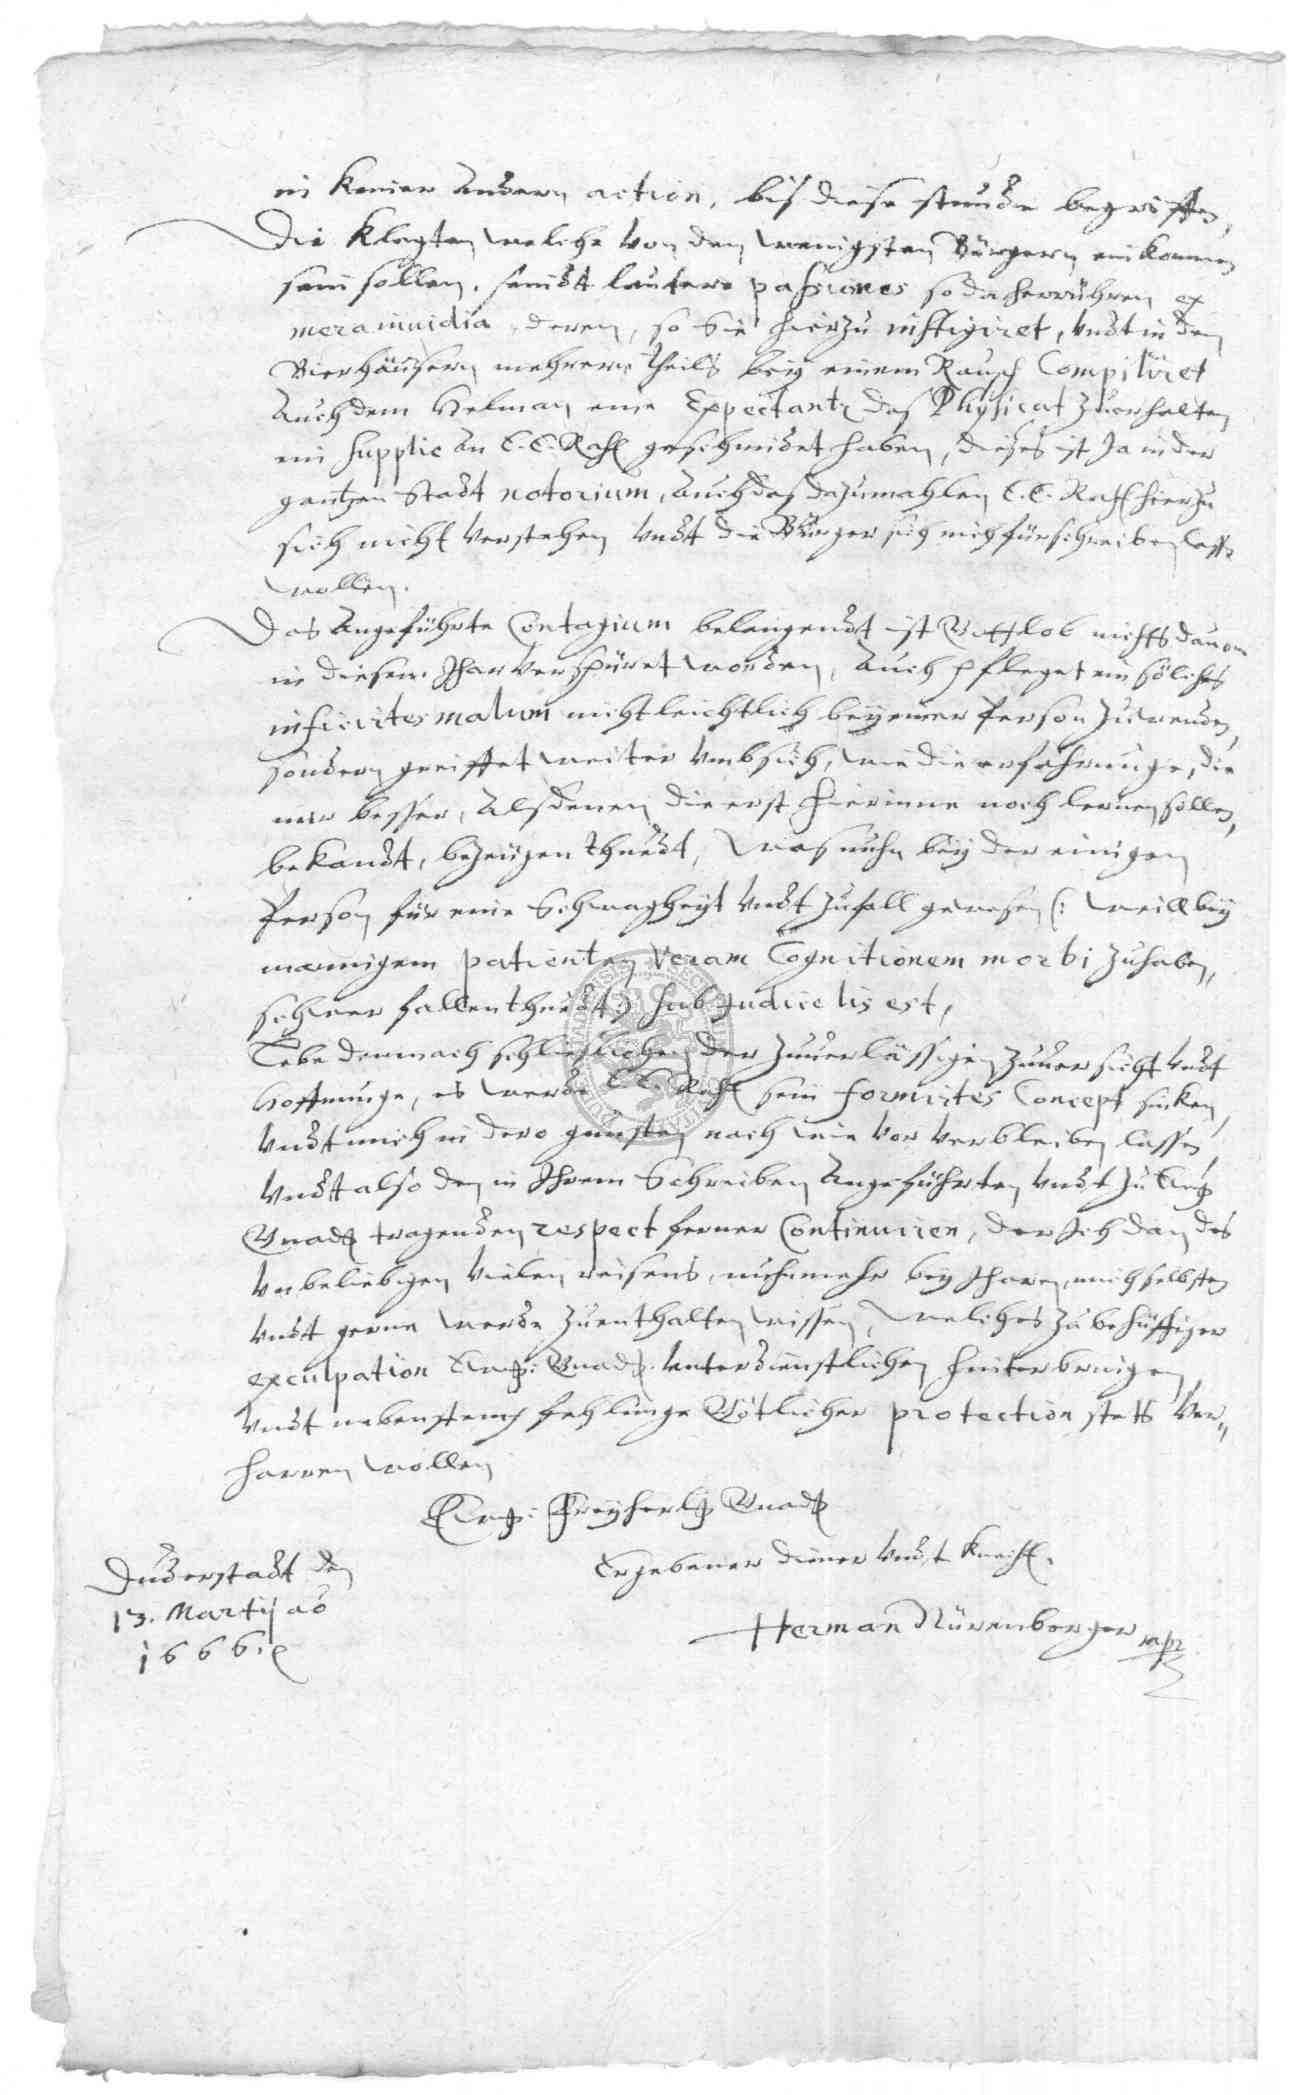 in keiner andern action, biß diese stunde begriffen,
Die Klagten welche von den wenigsten Bürgern einkommen
sein sollen, seindt lautere passiones so daherrühren ex
mera inuidia, deren, so Sie hierzu instigiret, undt in den
Bierhäusern mehrern theils bey einem Rausch Compiliret
Auch dem Helman eine Expectantz das Physicat zuerhalten
ein supplic an E. E. Raht geschmidet haben, dieses ist Ja in der
gantzen Stadt notorium, auch das dazumahlen E. E. Raht hierzu
sich nicht verstehen undt die Bürger sich nich fürschreiben lassen
wollen.
Das angeführte Contagium belangendt ist Gottlob nichts dauon
in diesem Jhar verspüret worden, auch pfleget ein solches
inficirtes malum nicht leichtlich bey einer Person zu enden,
sondern greiffet weiter umb sich, wie die erfahrunge, die
mir besser, alß denen, die erst hierinne noch lernen sollen,
bekandt, bezeugen thuedt, was nuhn bey der einigen
Person für eine Schwagheyt undt zufall gewesen (: weill bey
mannigem patienten veram Cognitionem morbi zuhaben,
schwer fallen thuedt :) sub Judice lis est,
Lebe demnach schließlichen der zuuerlässigen zuuersicht undt
Hoffnunge, es werde E. E. Raht sein formirtes Concept sinken,
undt mich in dero gunsten nach wie vor verbleiben lassen,
undt also den in Ihrem Schreiben angeführten undt zu Ewg
Gnadg tragenden respect ferner Continuiren, der Ich dan des
unbeliebigen vielen reisens, nuhnmehr bey Jharen, mich selbsten
undt gerne werde zuenthalten wissen, welches zu behuffiger
exculpation Ewg: Gnadg. unterdienstlichen hinterbringen,
undt nebenst empfehlunge Götlicher protection stets ver-
harren wollen
Ewg: Freyherlg Gnadg
Ergebener diener undt Knecht.
Duderstadt den
13. Martij ao
1666.
Herman Nürenberger mpr